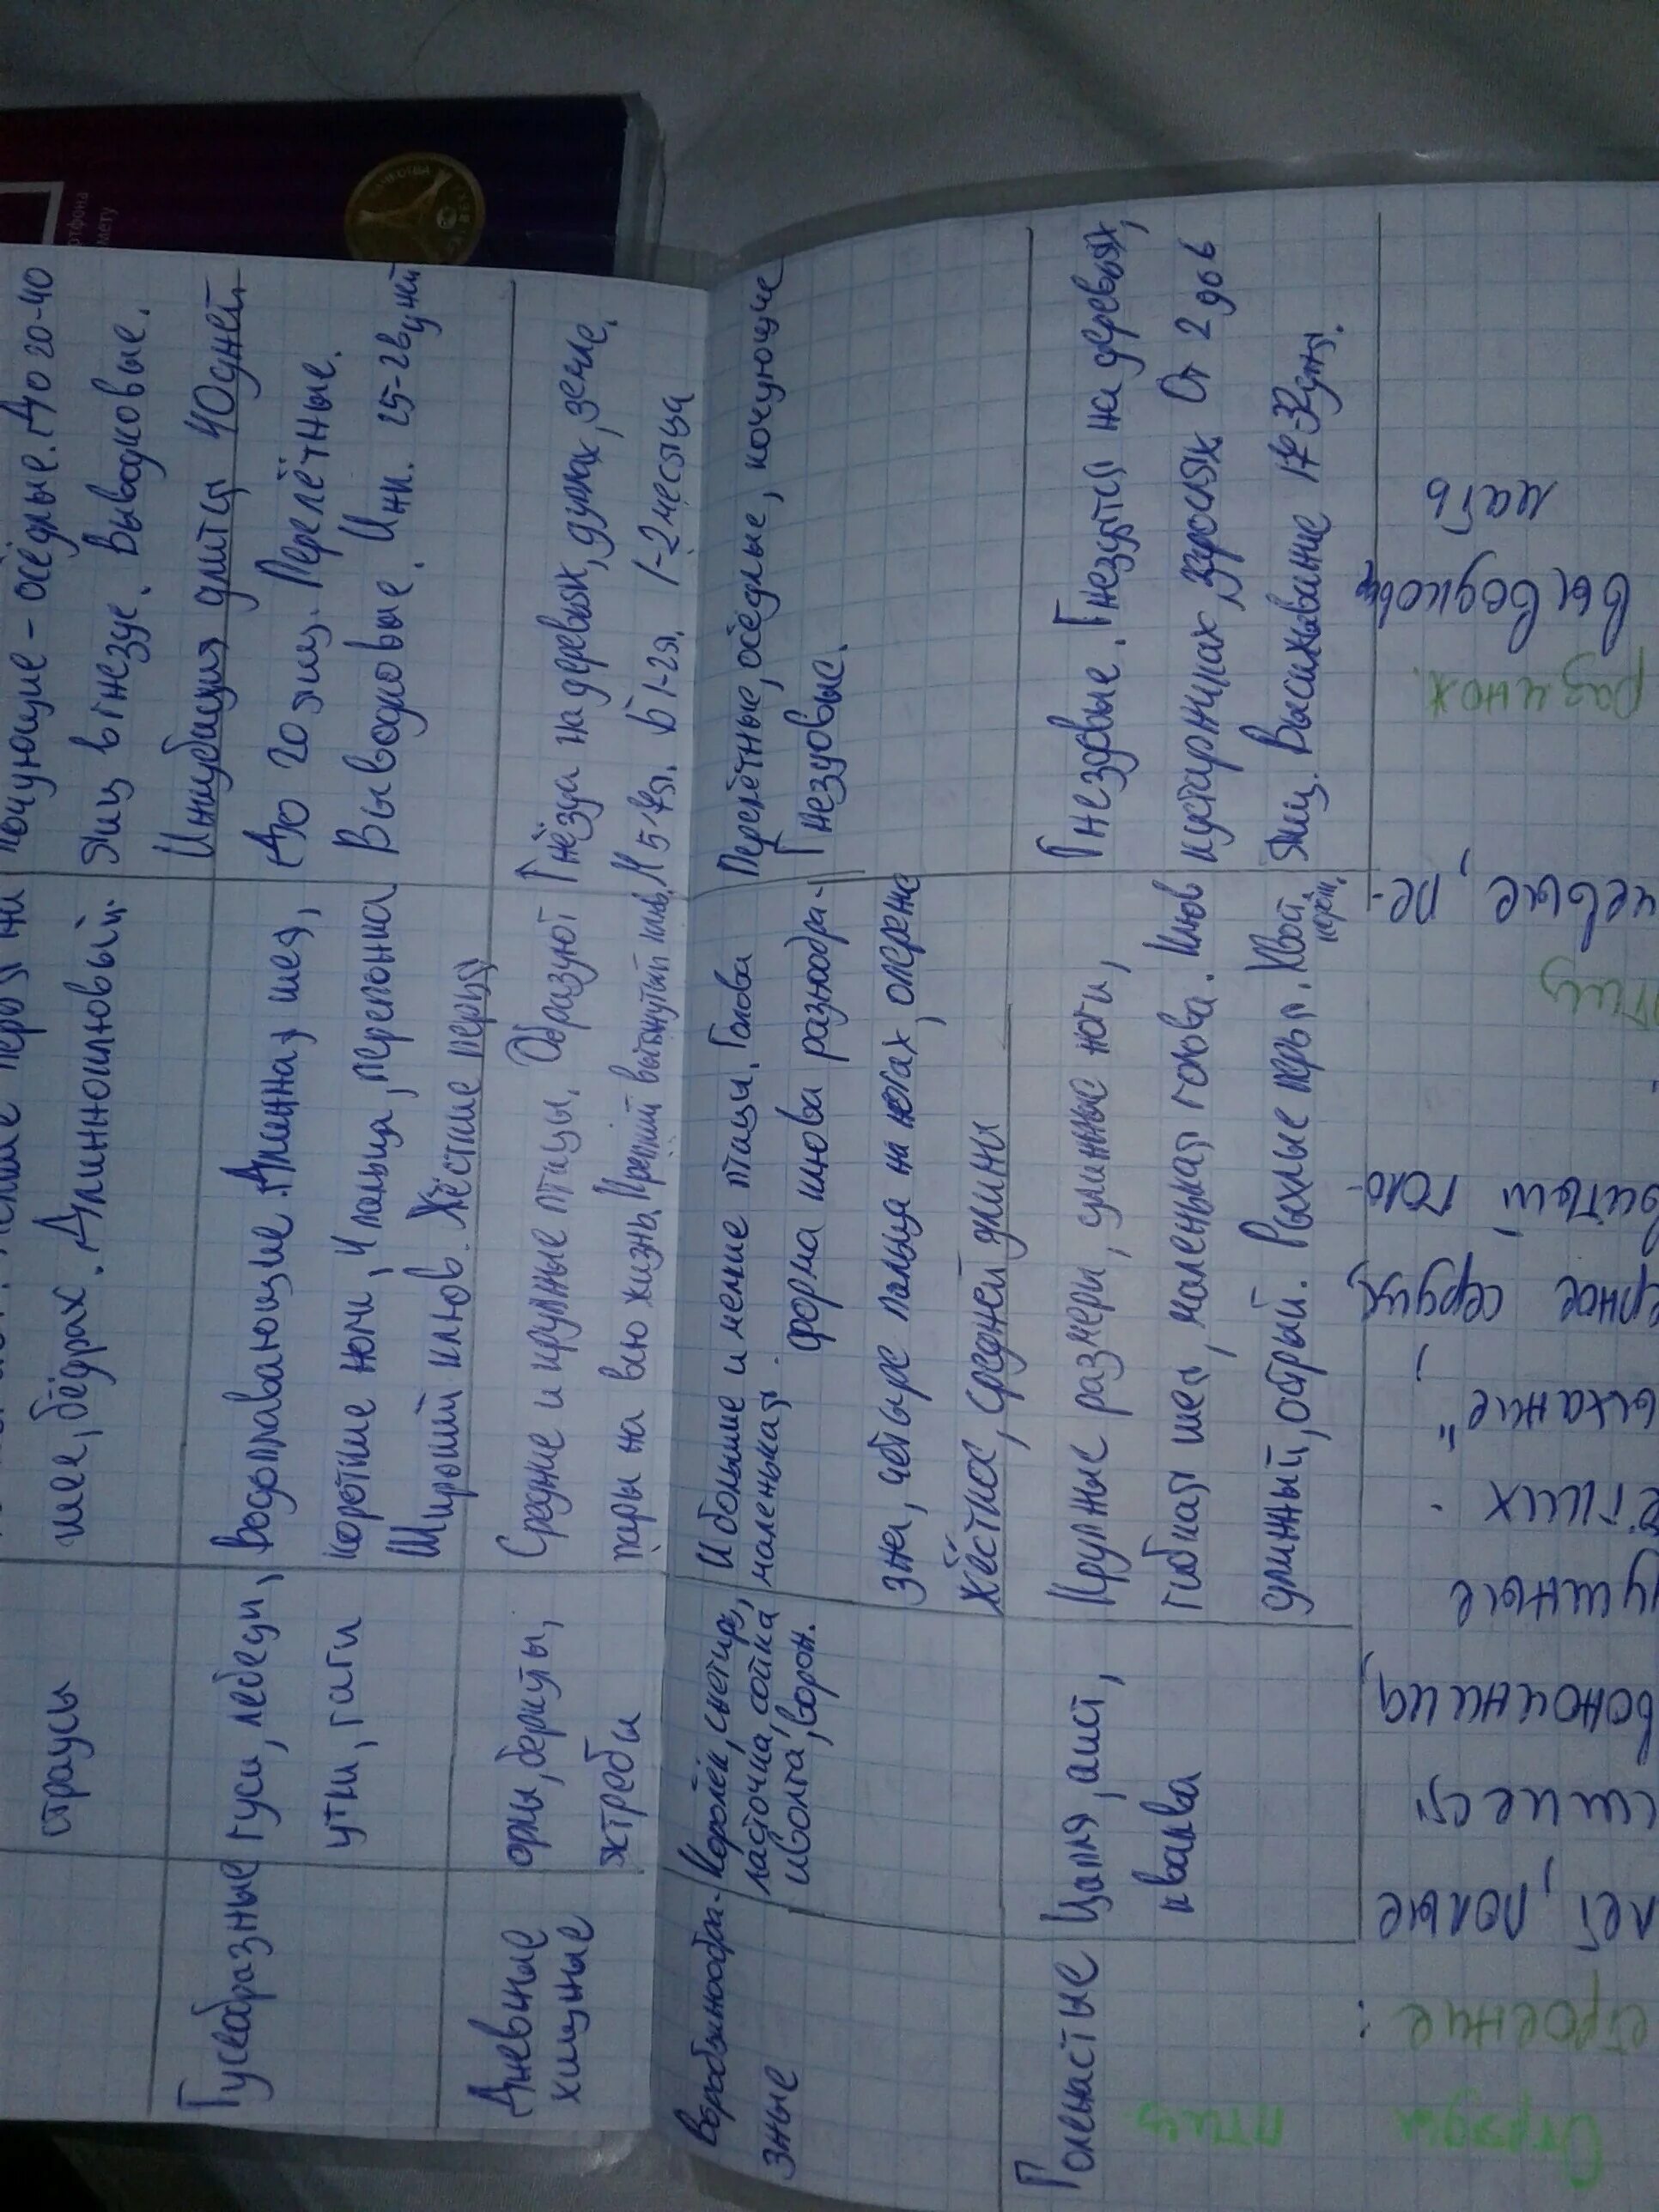 страусы
шее, бёдрах. Длинноклювый.
кочующие - оседлые. До 20-40
яиц в гнезде. Выводковые.
Инкубация длится 40 дней.
Гусеобразные
гуси, лебеди,
утки, гаги
Водоплавающие. Длинная шея,
короткие ноги, 4 пальца, перепонка
Широкий клюв. Жёсткие перья
До 20 яиц. Перелётные.
Выводковые. Инк. 25-28 дней
Дневные
хищные
орлы, беркуты,
ястребы
Средние и крупные птицы. Образуют
пары на всю жизнь. Крепкий выгнутый клюв.
Гнёзда на деревьях, дуплах, земле.
1-2 месяца
Воробьинообра-
зные
Королёк, снегирь,
ласточка, сойка
иволга, ворон.
И большие и мелкие птицы. Голова
маленькая. форма клюва разнообра-
зная, четыре пальца на ногах, оперение
жёсткое, средней длины
Перелётные, оседлые, кочующие
Гнездовые.
Голенастые
Цапля, аист,
кваква
Крупные размеры, длинные ноги,
гибкая шея, маленькая голова. Клюв
длинный, острый. Рыхлые перья. Хвост
корот.
Гнездовые. Гнездятся на деревьях,
кустарниках, зарослях От 2 до 6
яиц. Высиживание 17-32 дня.
Отряды
птиц
строение
:
птиц
размнож.
лет, полые
воночника
ушные
ыхание"
ерное сердце
витый голо-
чевые, ре-
выводковые
мать